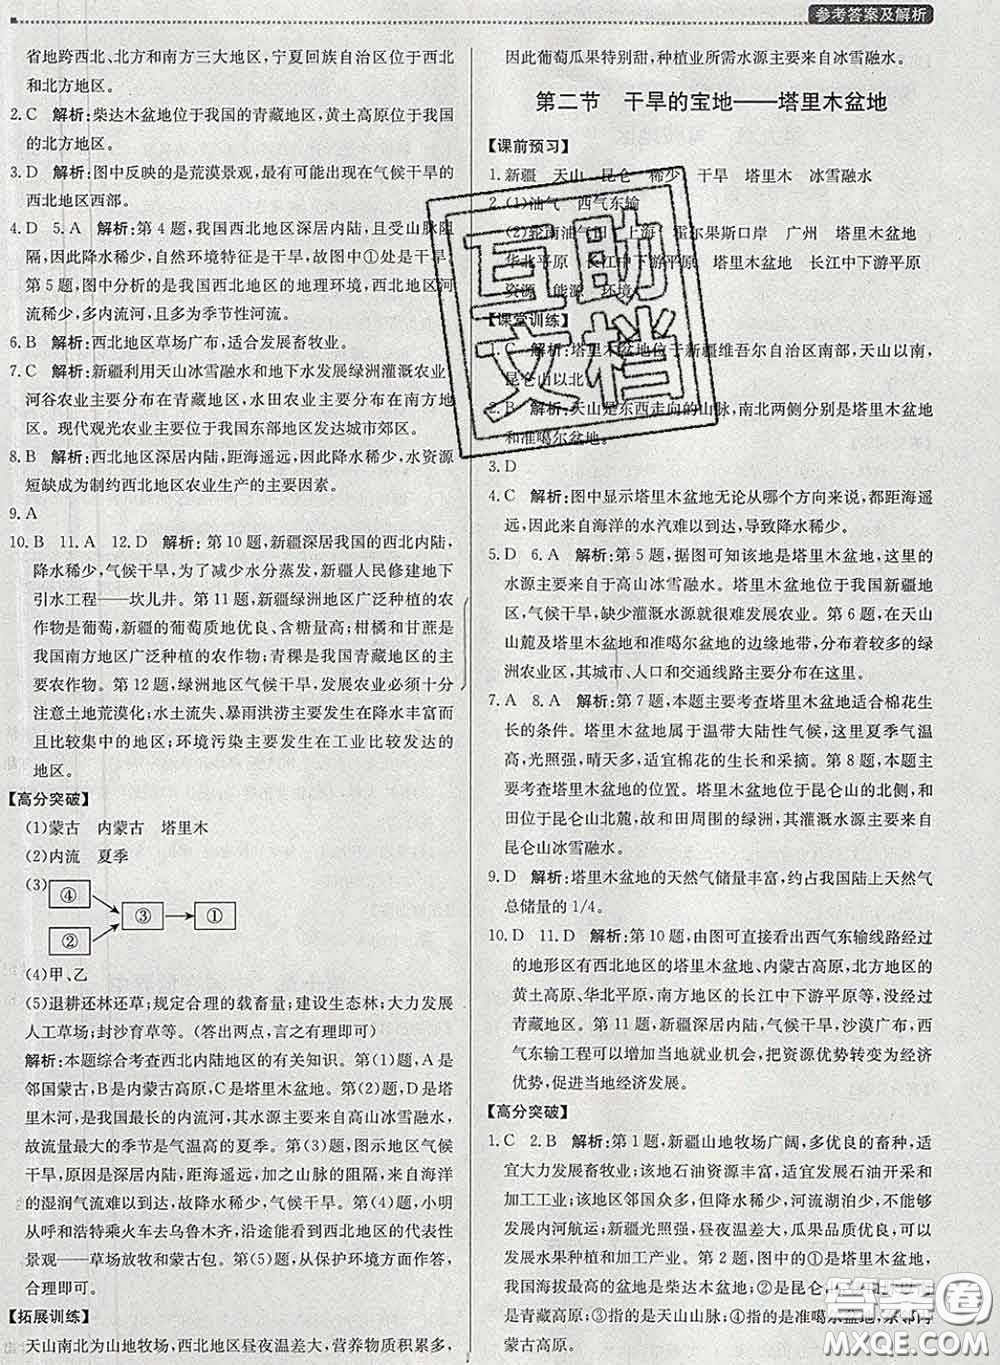 参考答案及解析
省地跨西北、北方和南方三大地区,宁夏回族自治区位于西北
和北方地区。
2. C 解析:柴达木盆地位于我国的青藏地区,黄土高原位于我国
的北方地区。
3. D 解析:图中反映的是荒漠景观,最有可能出现在气候干旱的
西北地区西部。
4. D 5. A 解析:第4题,我国西北地区深居内陆,且受山脉阻
隔,因此降水稀少,自然环境特征是干旱,故图中①处是干旱。
第5题,图中分析的是我国西北地区的地理环境,西北地区河
流稀少,多内流河,且多为季节性河流。
6. B 解析:西北地区草场广布,适合发展畜牧业。
7. C 解析:新疆利用天山冰雪融水和地下水发展绿洲灌溉农业,
河谷农业主要分布在青藏地区,水田农业主要分布在南方地
区。现代观光农业主要位于我国东部地区发达城市郊区。
8. B 解析:西北地区深居内陆,距海遥远,因此降水稀少,水资源
短缺成为制约西北地区农业生产的主要因素。
9. A
10. B 11. A 12. D 解析:第10题,新疆深居我国的西北内陆,
降水稀少,气候干旱,为了减少水分蒸发,新疆人民修建地下
引水工程——坎儿井。第11题,新疆绿洲地区广泛种植的农
作物是葡萄,新疆的葡萄质地优良、含糖量高;柑橘和甘蔗是
我国南方地区广泛种植的农作物;青稞是我国青藏地区的农
作物。第12题,绿洲地区气候干旱,发展农业必须十分
注意土地荒漠化;水土流失、暴雨洪涝主要发生在降水丰富而
且比较集中的地区;环境污染主要发生在工业比较发达的
地区。
【高分突破】
(1)蒙古 内蒙古 塔里木
(2)内流 夏季
(3) ④ ② ③ ①
(4)甲、乙
(5)退耕还林还草;规定合理的载畜量;建设生态林;大力发展
人工草场;封沙育草等。(答出两点,言之有理即可)
解析:本题综合考查西北内陆地区的有关知识。第(1)题,A是
邻国蒙古,B是内蒙古高原,C是塔里木盆地。第(2)题,D是塔
里木河,是我国最长的内流河,其水源主要来自高山冰雪融水,
故流量最大的季节是气温高的夏季。第(3)题,图示地区气候
干旱,原因是深居内陆,距海遥远,加之山脉的阻隔,来自海洋
的湿润气流难以到达,故降水稀少,气候干旱。第(4)题,小明
从呼和浩特乘火车去乌鲁木齐,沿途能看到西北地区的代表性
景观——草场放牧和蒙古包。第(5)题,从保护环境方面作答,
合理即可。
【拓展训练】
天山南北为山地牧场,西北地区昼夜温差大,营养物质积累多,
因此葡萄瓜果特别甜,种植业所需水源主要来自冰雪融水。
第二节 干旱的宝地——塔里木盆地
【课前预习】
1. 新疆 天山 昆仑 稀少 干旱 塔里木 冰雪融水
2. (1)油气 西气东输
(2)轮南油气田 上海 霍尔果斯口岸 广州 塔里木盆地
华北平原 长江中下游平原 塔里木盆地 长江中下游平原
资源 能源 环境
【课堂训练】
1. C 解析:塔里木盆地位于新疆维吾尔自治区南部,天山以南,
昆仑山以北。
2. B 解析:天山是东西走向的山脉,南北两侧分别是塔里木盆地
和准噶尔盆地。
3. D
4. C 解析:图中显示塔里木盆地无论从哪个方向来说,都距海遥
远,因此来自海洋的水汽难以到达,导致降水稀少。
5. D 6. A 解析:第5题,据图可知该地是塔里木盆地,这里的
水源主要来自于高山冰雪融水。塔里木盆地位于我国新疆地
区,气候干旱,缺少灌溉水源就很难发展农业。第6题,在天山
山麓及塔里木盆地和准噶尔盆地的边缘地带,分布着较多的绿
洲农业区,其城市、人口和交通线路主要分布在这里。
7. A 8. A 解析:第7题,本题主要考查塔里木盆地适合棉花生
长的条件。塔里木盆地属于温带大陆性气候,这里夏季气温
高,光照强,晴天多,适宜棉花的生长和采摘。第8题,本题主
要考查塔里木盆地的位置。塔里木盆地位于昆仑山的北侧,和
田位于昆仑山北麓,故和田周围的绿洲,其灌溉水源主要来自
昆仑山冰雪融水。
9. D 解析:塔里木盆地的天然气储量丰富,约占我国陆上天然气
总储量的1/4。
10. D 11. D 解析:第10题,由图可直接看出西气东输线路经过
的地形区有西北地区的塔里木盆地、内蒙古高原,北方地区的
黄土高原、华北平原,南方地区的长江中下游平原等,没有经过
青藏地区。第11题,新疆深居内陆,气候干旱,沙漠广布,西
气东输工程可以增加当地就业机会,把资源优势转变为经济优
势,促进当地经济发展。
【高分突破】
1. C 2. B 解析:第1题,新疆山地牧场广阔,多优良的畜种,适
宜大力发展畜牧业;该地石油资源丰富,适宜发展石油开采和
加工工业;该地区邻国众多,但降水稀少,河流湖泊少,不能
发展内河航运;新疆光照强,昼夜温差大,瓜果品质优良,可以
发展水果种植和加工产业。第2题,图中的①是塔里木盆地,
我国海拔最高的盆地是柴达木盆地;②是昆仑山
是青藏高原;③指的是天山山脉;④指的是准噶尔盆地
内蒙古高原。
互助
文档
答案圈
MXQE.COM